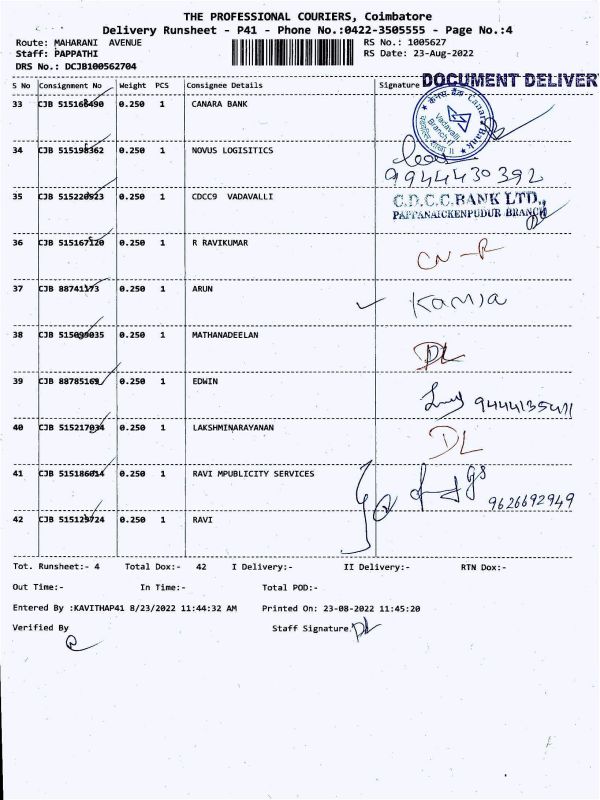 THE PROFESSIONAL COURIERS, Coimbatore
Delivery Runsheet - P41 - Phone No.:0422-3505555 - Page No.:4
Route: MAHARANI AVENUE
Staff: PAPPATHI
DRS No.: DCJB100562704
RS No.: 1005627
RS Date: 23-Aug-2022
S No Consignment No Weight PCS Consignee Details Signature
DOCUMENT DELIVER
33 CJB 515168490 0.250 1 CANARA BANK
34 CJB 515198362 0.250 1 NOVUS LOGISITICS
9944430392
35 CJB 515220923 0.250 1 CDCC9 VADAVALLI
C.D.C.C.BANK LTD.,
PAPPANAICKENPUDUR BRANCH
36 CJB 515167120 0.250 1 R RAVIKUMAR
37 CJB 88741173 0.250 1 ARUN
38 CJB 515099035 0.250 1 MATHANADEELAN
DL
39 CJB 88785169 0.250 1 EDWIN
40 CJB 515217034 0.250 1 LAKSHMINARAYANAN
DL
41 CJB 515186014 0.250 1 RAVI MPUBLICITY SERVICES
9626692949
42 CJB 515129724 0.250 1 RAVI
Tot. Runsheet:- 4 Total Dox:- 42 I Delivery:- II Delivery:- RTN Dox:-
Out Time:- In Time:- Total POD:-
Entered By :KAVITHAP41 8/23/2022 11:44:32 AM Printed On: 23-08-2022 11:45:20
Verified By Staff Signature